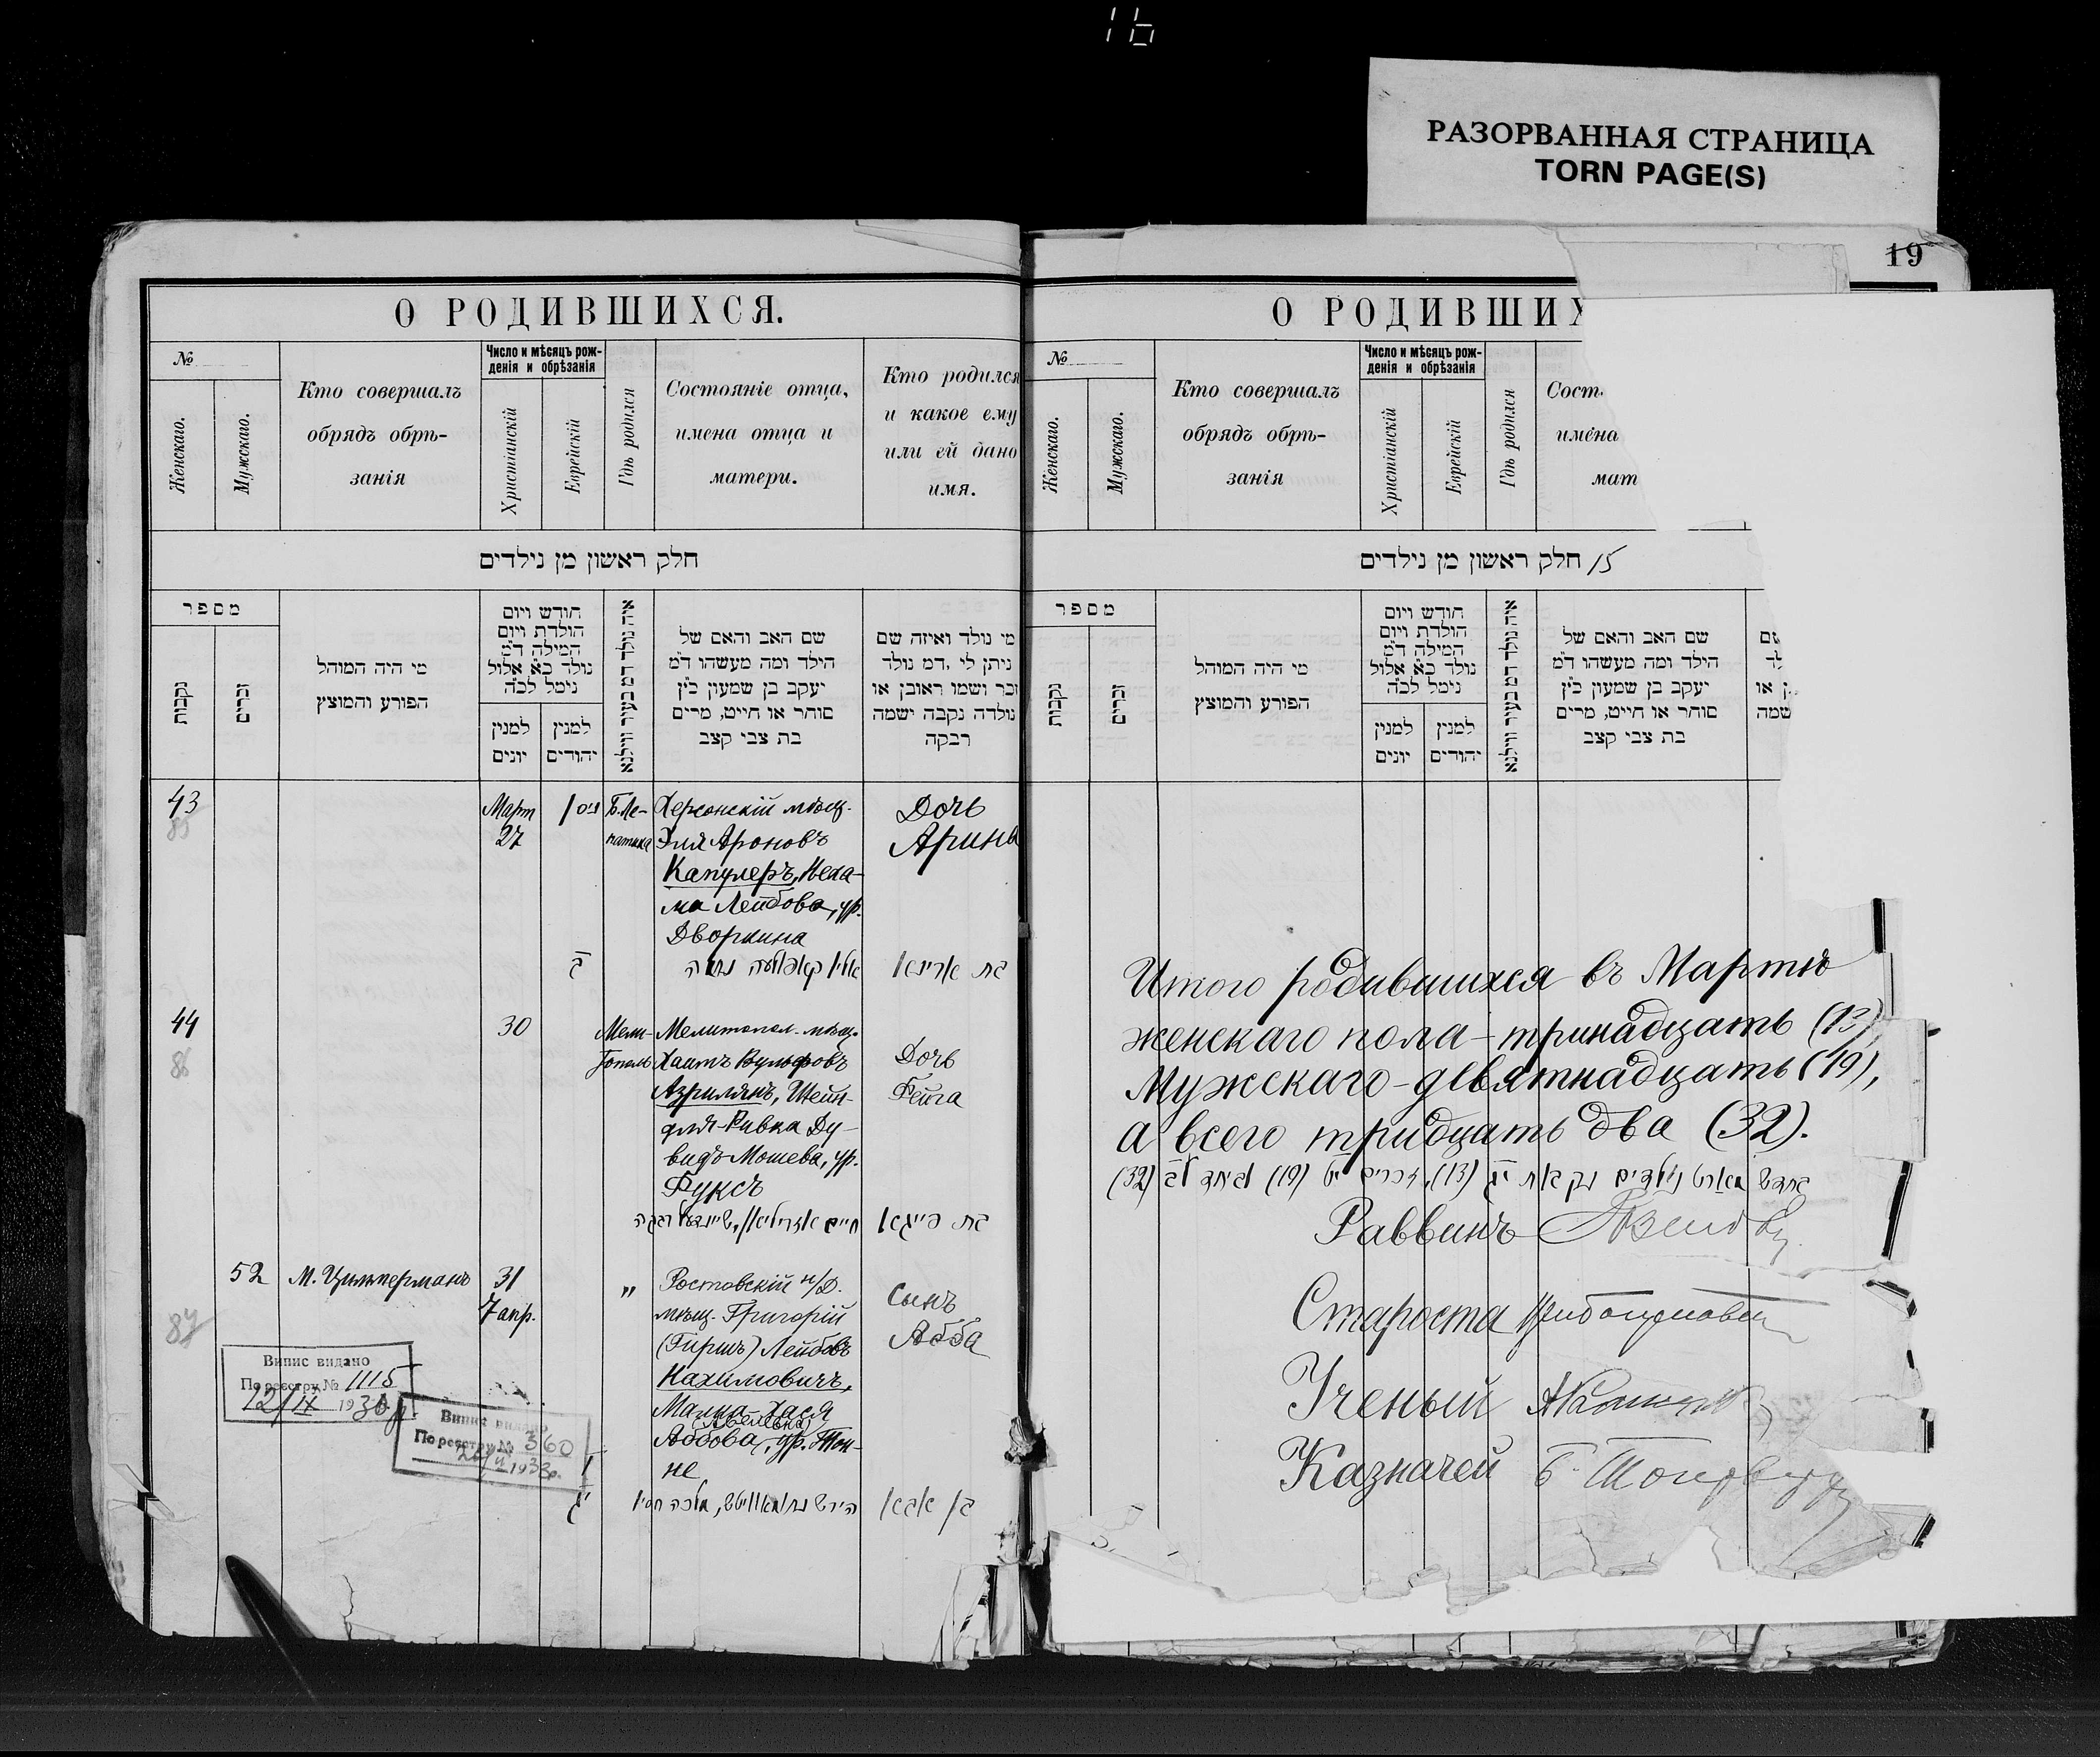 16
РАЗОРВАННАЯ СТРАНИЦА
TORN PAGE(S)
19
О РОДИВШИХСЯ.
№
Женскаго.
Мужскаго.
Кто совершалъ
обрядъ обрѣ-
занія
Число и мѣсяцъ рож-
денія и обрѣзанія
Христіанскій
Еврейскій
Гдѣ родился
Состояніе отца,
имена отца и
матери.
Кто родился
и какое ему
или ей дано
имя.
חלק ראשון מן נילדים
מספר
נקבות
זכרים
מי היה המוהל
הפורע והמוצץ
חודש ויום
הולדת ויום
המילה ד״מ
נולד כא אלול
נימל לכה
למנין
יונים
למנין
יהודים
איה נולד דמ בעיר ווילנא
שם האב והאם של
הילד ומה מעשהו ד״מ
יעקב בן שמעון כ״ץ
סוחר או חייט, מרים
בת צבי קצב
מי נולד ואיזה שם
ניתן לי, דמ נולד
זכר ושמו ראובן או
נולדה נקבה ישמה
רבקה
43
85
Март
27
ניס
Б. Ле-
патиха
Херсонскій мѣщ.
Эля Ароновъ
Капулеръ, Неха-
ма Лейбова, ур.
Дворкина
Дочь
Арина
ג
בת ארינא
44
86
30
Мели-
тополь
Мелитопол. мѣщ.
Хаимъ Вульфовъ
Азрилянъ, Шейн-
для-Ривка Ду-
видъ-Мошева, ур.
Фуксъ
Дочь
Фейга
חיים אזריליאן, שיינדעל רבקה
בת פייגא
52
87
М. Цимерманъ
31
7 апр.
"
Ростовскій н/Д.
мѣщ. Григорій
(Гиршъ) Лейбовъ
Нахимовичъ,
Малка-Хася
(Абелевна)
Аббова, ур. Тон-
не
Сынъ
Абба
יג
הירש נחימאוויטש, מלכה חסיא
בן אבא
Випис видано
По реєстру № 1115
12/IX 1930 р.
Випис видано
По реєстру № 360
193 р.
О РОДИВШИХ
№
Женскаго.
Мужскаго.
Кто совершалъ
обрядъ обрѣ-
занія
Число и мѣсяцъ рож-
денія и обрѣзанія
Христіанскій
Еврейскій
Гдѣ родился
Сост
имена
мат
חלק ראשון מן נילדים 15
מספר
נקבות
זכרים
מי היה המוהל
הפורע והמוצץ
חודש ויום
הולדת ויום
המילה ד״מ
נולד כא אלול
נימל לכה
למנין
יונים
למנין
יהודים
איה נולד דמ בעיר ווילנא
שם האב והאם של
הילד ומה מעשהו ד״מ
יעקב בן שמעון כ״ץ
סוחר או חייט, מרים
בת צבי קצב
Итого родившихся въ Мартѣ
женскаго пола – тринадцать (13)
Мужскаго – девятнадцать (19),
а всего тридцать два (32).
בחדש מארט נילדים נקבות יג (13), זכרים יט (19) וביחד לב (32)
Раввинъ
Староста
Ученый
Казначей